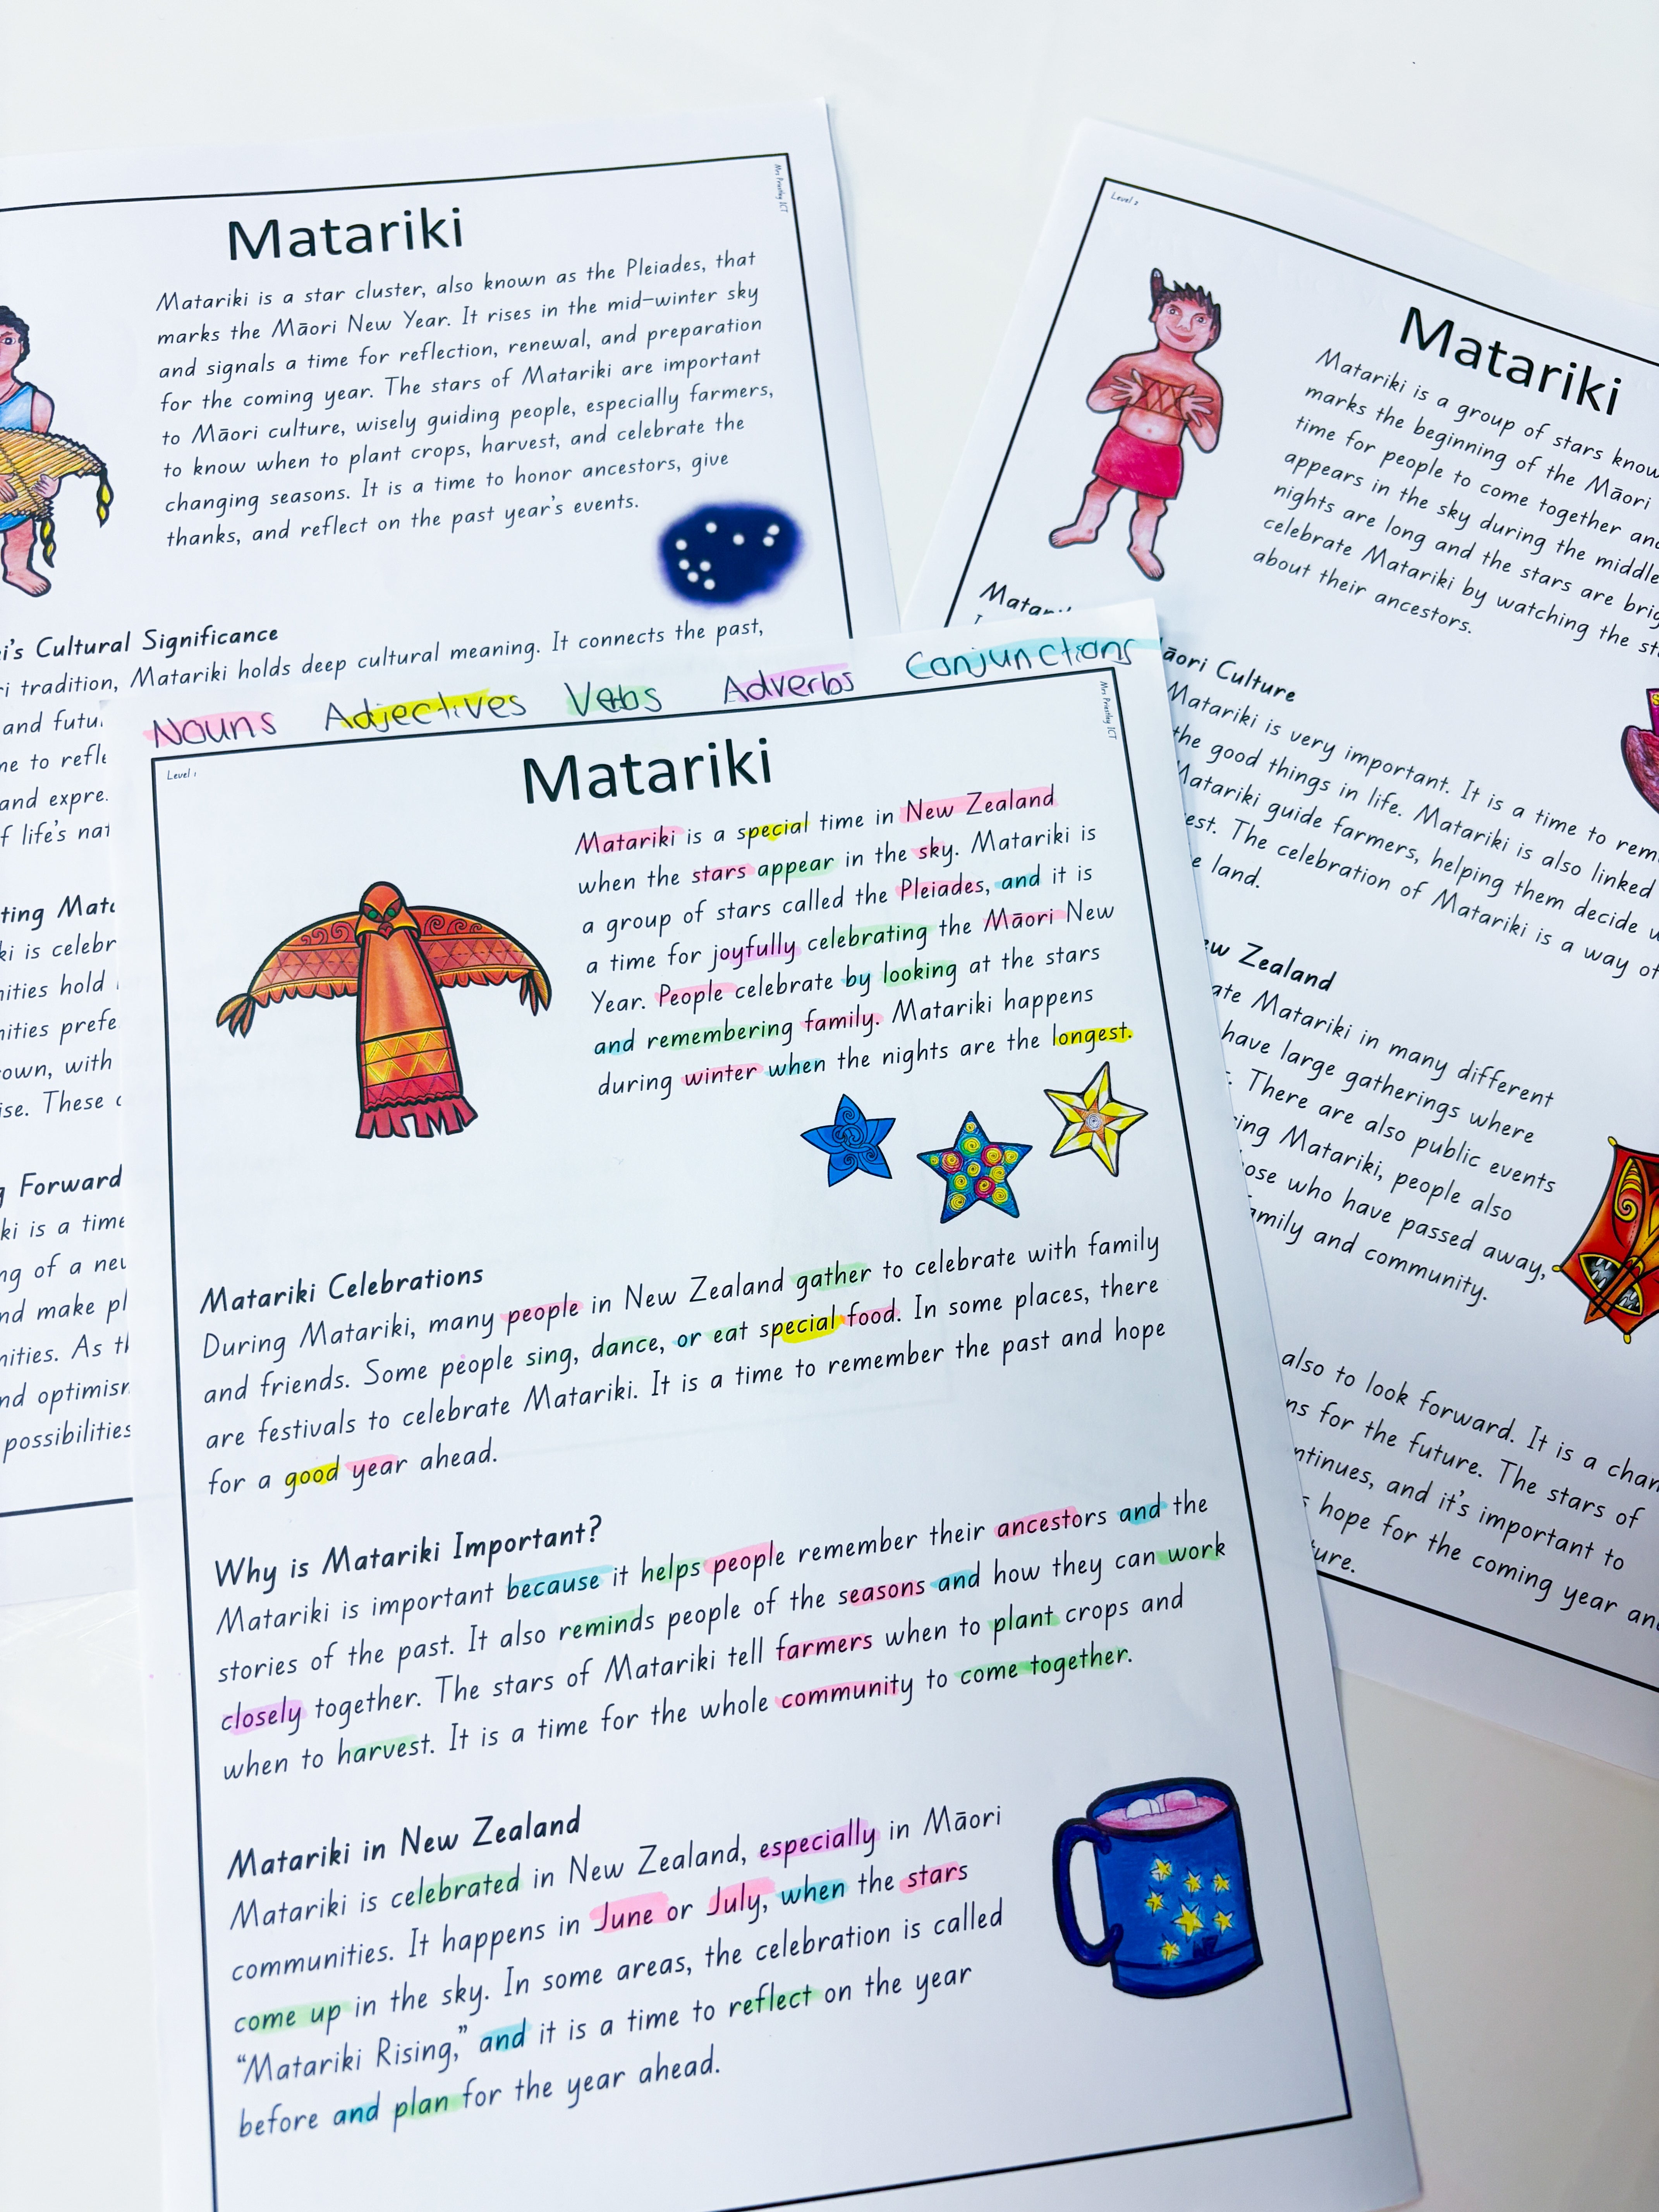 Mrs Priestley ICT
Matariki
Matariki is a star cluster, also known as the Pleiades, that
marks the Māori New Year. It rises in the mid-winter sky
and signals a time for reflection, renewal, and preparation
for the coming year. The stars of Matariki are important
to Māori culture, wisely guiding people, especially farmers,
to know when to plant crops, harvest, and celebrate the
changing seasons. It is a time to honor ancestors, give
thanks, and reflect on the past year's events.
i's Cultural Significance
ri tradition, Matariki holds deep cultural meaning. It connects the past,
and futu
ne to refle
and expre
f life's nat
ting Mat
ki is celebr
nities hold
nities prefe
own, with
ise. These
g Forward
ki is a time
ng of a new
nd make pl
nities. As th
nd optimism
possibilities
Level 2
Matariki
Matariki is a group of stars know
marks the beginning of the Māori
time for people to come together and
appears in the sky during the middle
nights are long and the stars are brig
celebrate Matariki by watching the st
about their ancestors.
Matari
āori Culture
Matariki is very important. It is a time to rem
the good things in life. Matariki is also linked
Matariki guide farmers, helping them decide w
est. The celebration of Matariki is a way of
e land.
ew Zealand
ate Matariki in many different
have large gatherings where
. There are also public events
ing Matariki, people also
ose who have passed away,
amily and community.
also to look forward. It is a chan
ns for the future. The stars of
ntinues, and it's important to
s hope for the coming year and
ture.
Nouns Adjectives Verbs Adverbs Conjunctions
Level 1
Mrs Priestley ICT
Matariki
Matariki is a special time in New Zealand
when the stars appear in the sky. Matariki is
a group of stars called the Pleiades, and it is
a time for joyfully celebrating the Māori New
Year. People celebrate by looking at the stars
and remembering family. Matariki happens
during winter when the nights are the longest.
Matariki Celebrations
During Matariki, many people in New Zealand gather to celebrate with family
and friends. Some people sing, dance, or eat special food. In some places, there
are festivals to celebrate Matariki. It is a time to remember the past and hope
for a good year ahead.
Why is Matariki Important?
Matariki is important because it helps people remember their ancestors and the
stories of the past. It also reminds people of the seasons and how they can work
closely together. The stars of Matariki tell farmers when to plant crops and
when to harvest. It is a time for the whole community to come together.
Matariki in New Zealand
Matariki is celebrated in New Zealand, especially in Māori
communities. It happens in June or July, when the stars
come up in the sky. In some areas, the celebration is called
"Matariki Rising," and it is a time to reflect on the year
before and plan for the year ahead.